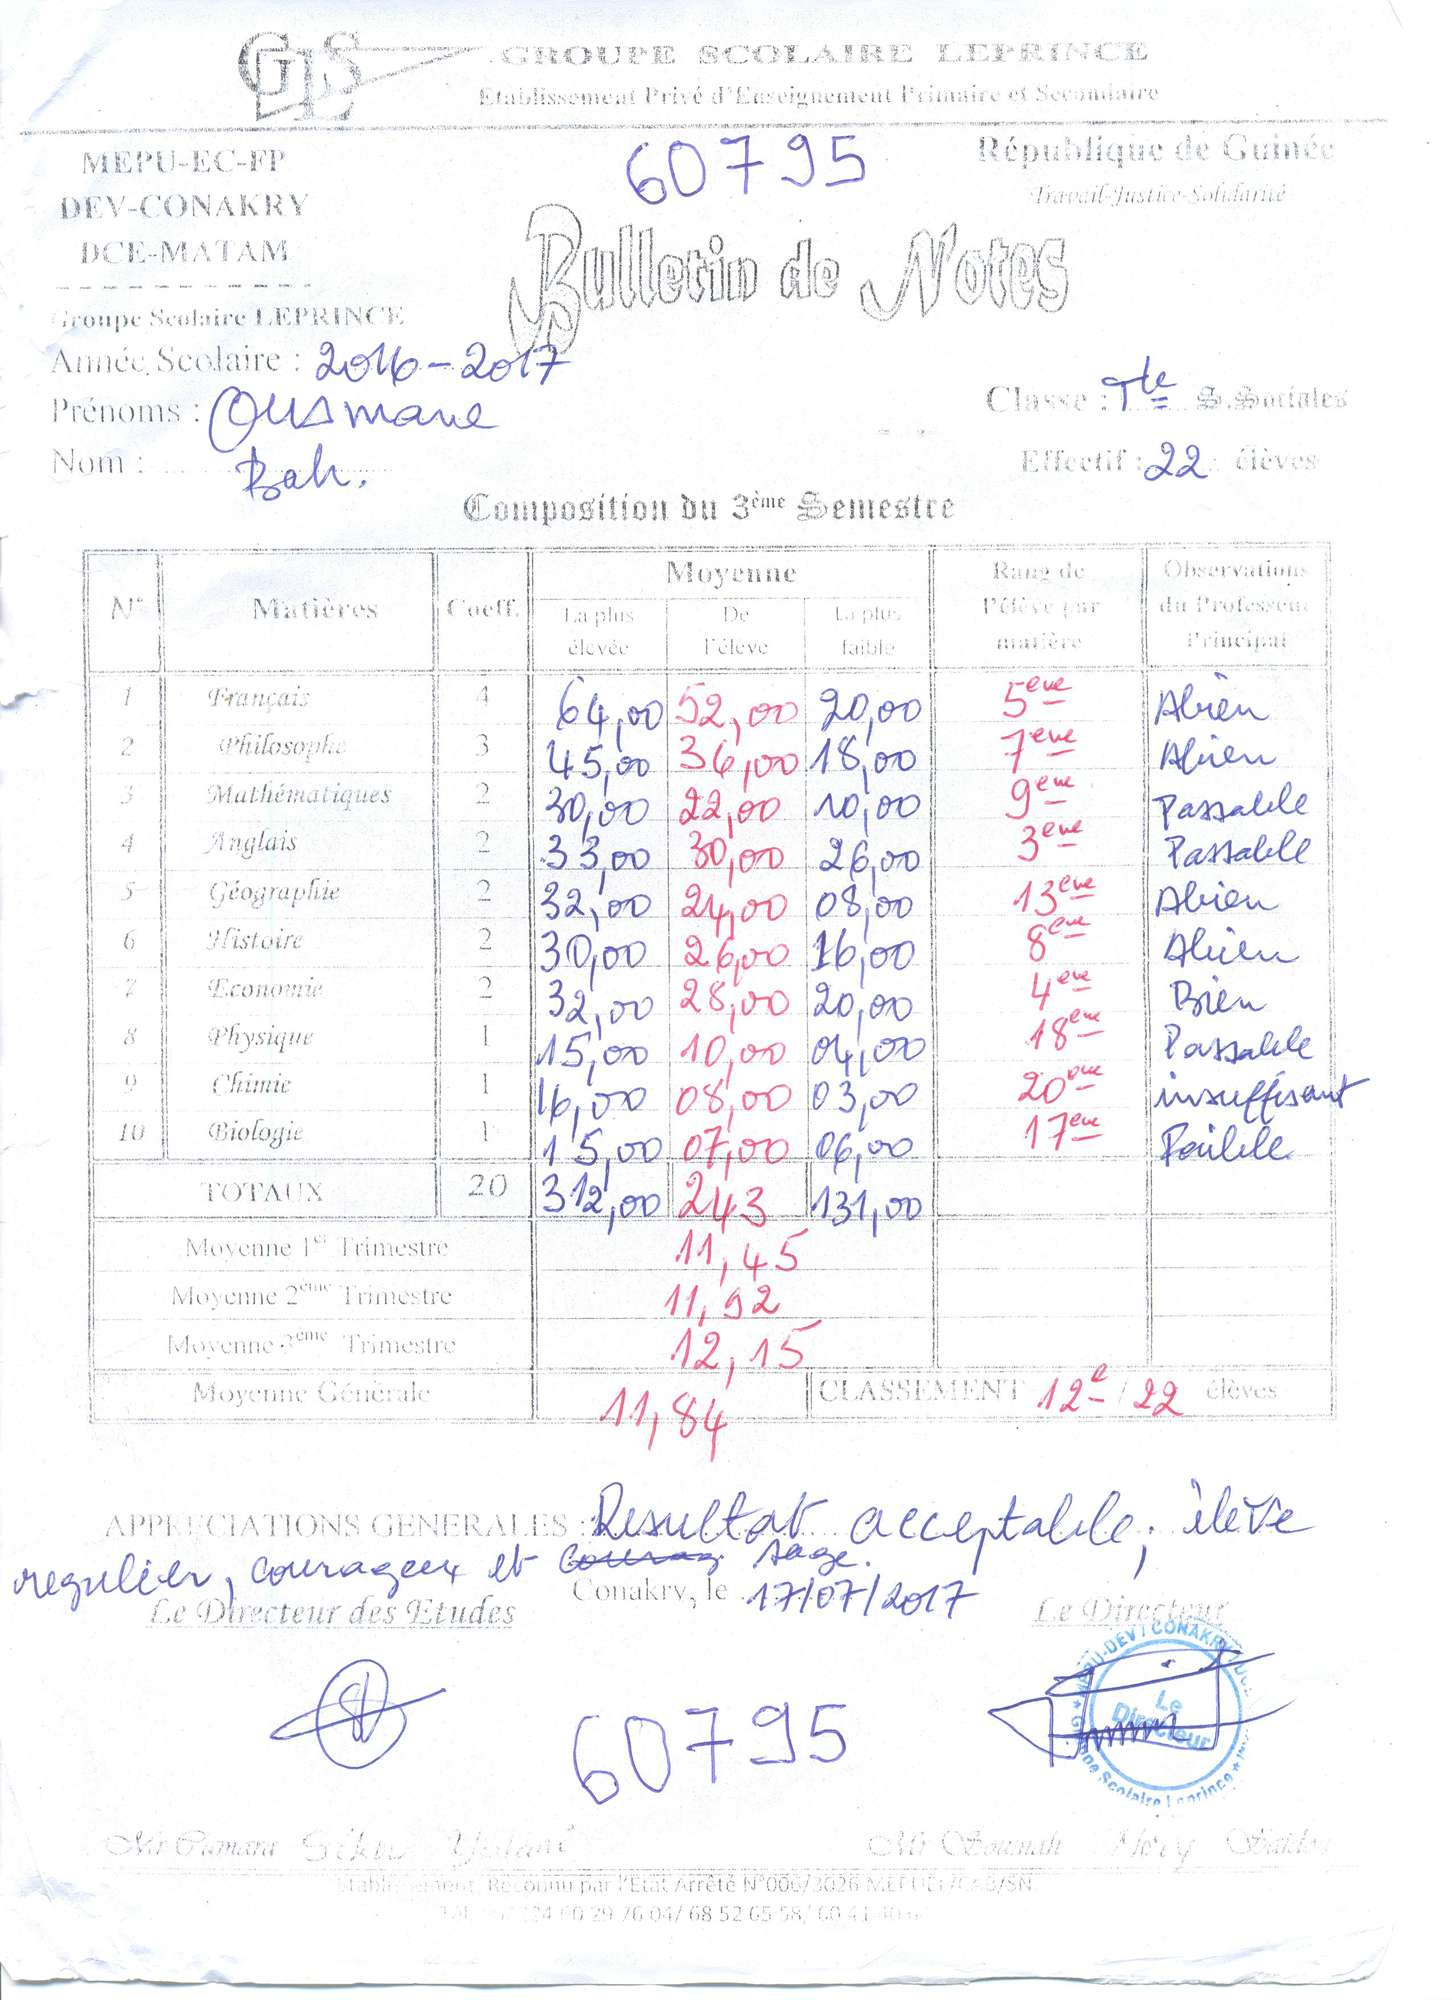 GLS GROUPE SCOLAIRE LEPRINCE
Etablissement Privé d'Enseignement Primaire et Secondaire
MEPU-EC-FP 60795 République de Guinée
DEV-CONAKRY Travail-Justice-Solidarité
DCE-MATAM Bulletin de Notes
Groupe Scolaire LEPRINCE
Année Scolaire : 2016-2017
Prénoms : Ousmane Classe : Tle S.Sociales
Nom : Bah. Effectif : 22 élèves
Composition du 3ème Semestre
N° Matières Coeff. Moyenne Rang de l'élève par matière Observations du Professeur Principal
La plus élevée De l'élève La plus faible
1 Français 4 64,00 52,00 20,00 5ème Abien
2 Philosophe 3 45,00 36,00 18,00 7ème Abien
3 Mathématiques 2 30,00 22,00 10,00 9ème Passable
4 Anglais 2 33,00 30,00 26,00 3ème Passable
5 Géographie 2 32,00 24,00 08,00 13ème Abien
6 Histoire 2 30,00 26,00 16,00 8ème Abien
7 Economie 2 32,00 28,00 20,00 4ème Bien
8 Physique 1 15,00 10,00 04,00 18ème Passable
9 Chimie 1 16,00 08,00 03,00 20ème insuffisant
10 Biologie 1 15,00 07,00 06,00 17ème Faible
TOTAUX 20 312,00 243 131,00
Moyenne 1er Trimestre 11,45
Moyenne 2ème Trimestre 11,92
Moyenne 3ème Trimestre 12,15
Moyenne Générale 11,84 CLASSEMENT 12e / 22 élèves
APPRECIATIONS GENERALES : Resultat acceptable, élève
regulier, courageux et sage.
Conakry, le 17/07/2017
Le Directeur des Etudes Le Directeur
MEPU-DEV / CONAKRY
Le Directeur
Groupe Scolaire Leprince
60795
Mr Camara Mr Soumah
Etablissement Reconnu par l'Etat Arrêté N°006/3026